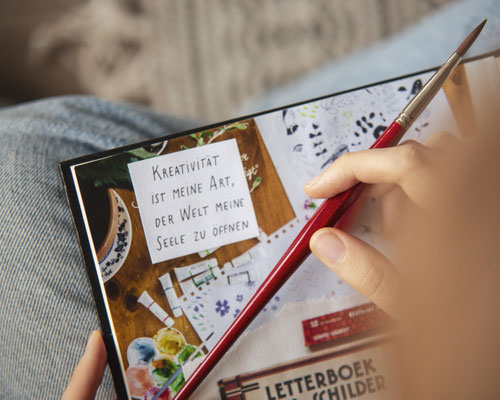 KREATIVITÄT
IST MEINE ART,
DER WELT MEINE
SEELE ZU ÖFFNEN
LETTERBOEK
SCHILDER